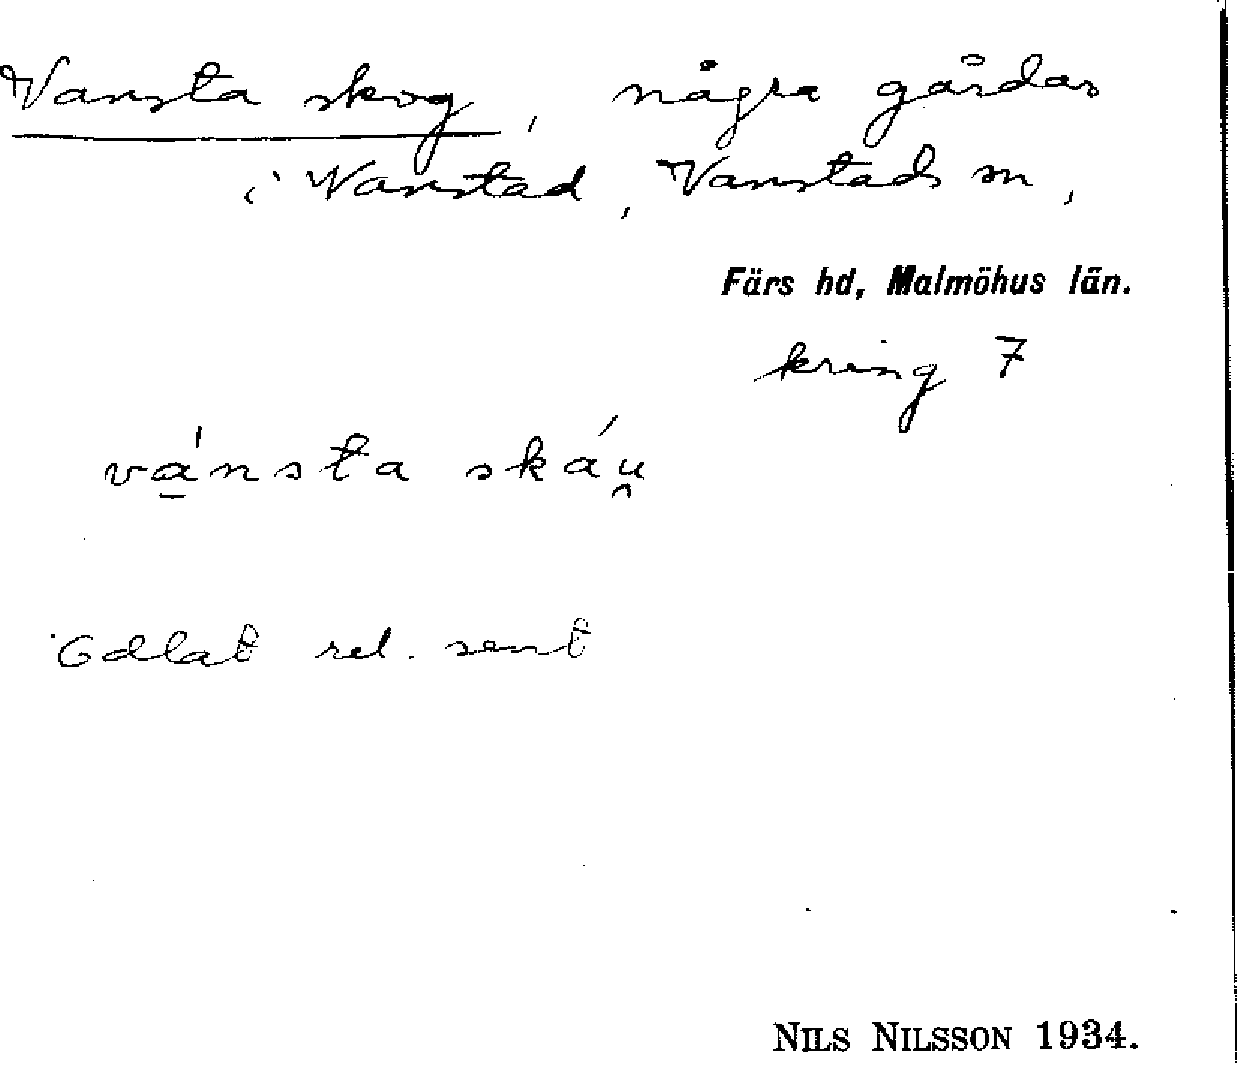 Vansta skog, några gårdar
i Vanstad, Vanstads sn,
Färs hd, Malmöhus län.
kring 7
vá̱nsta skáu̯
Odlat rel. sent
NILS NILSSON 1934.